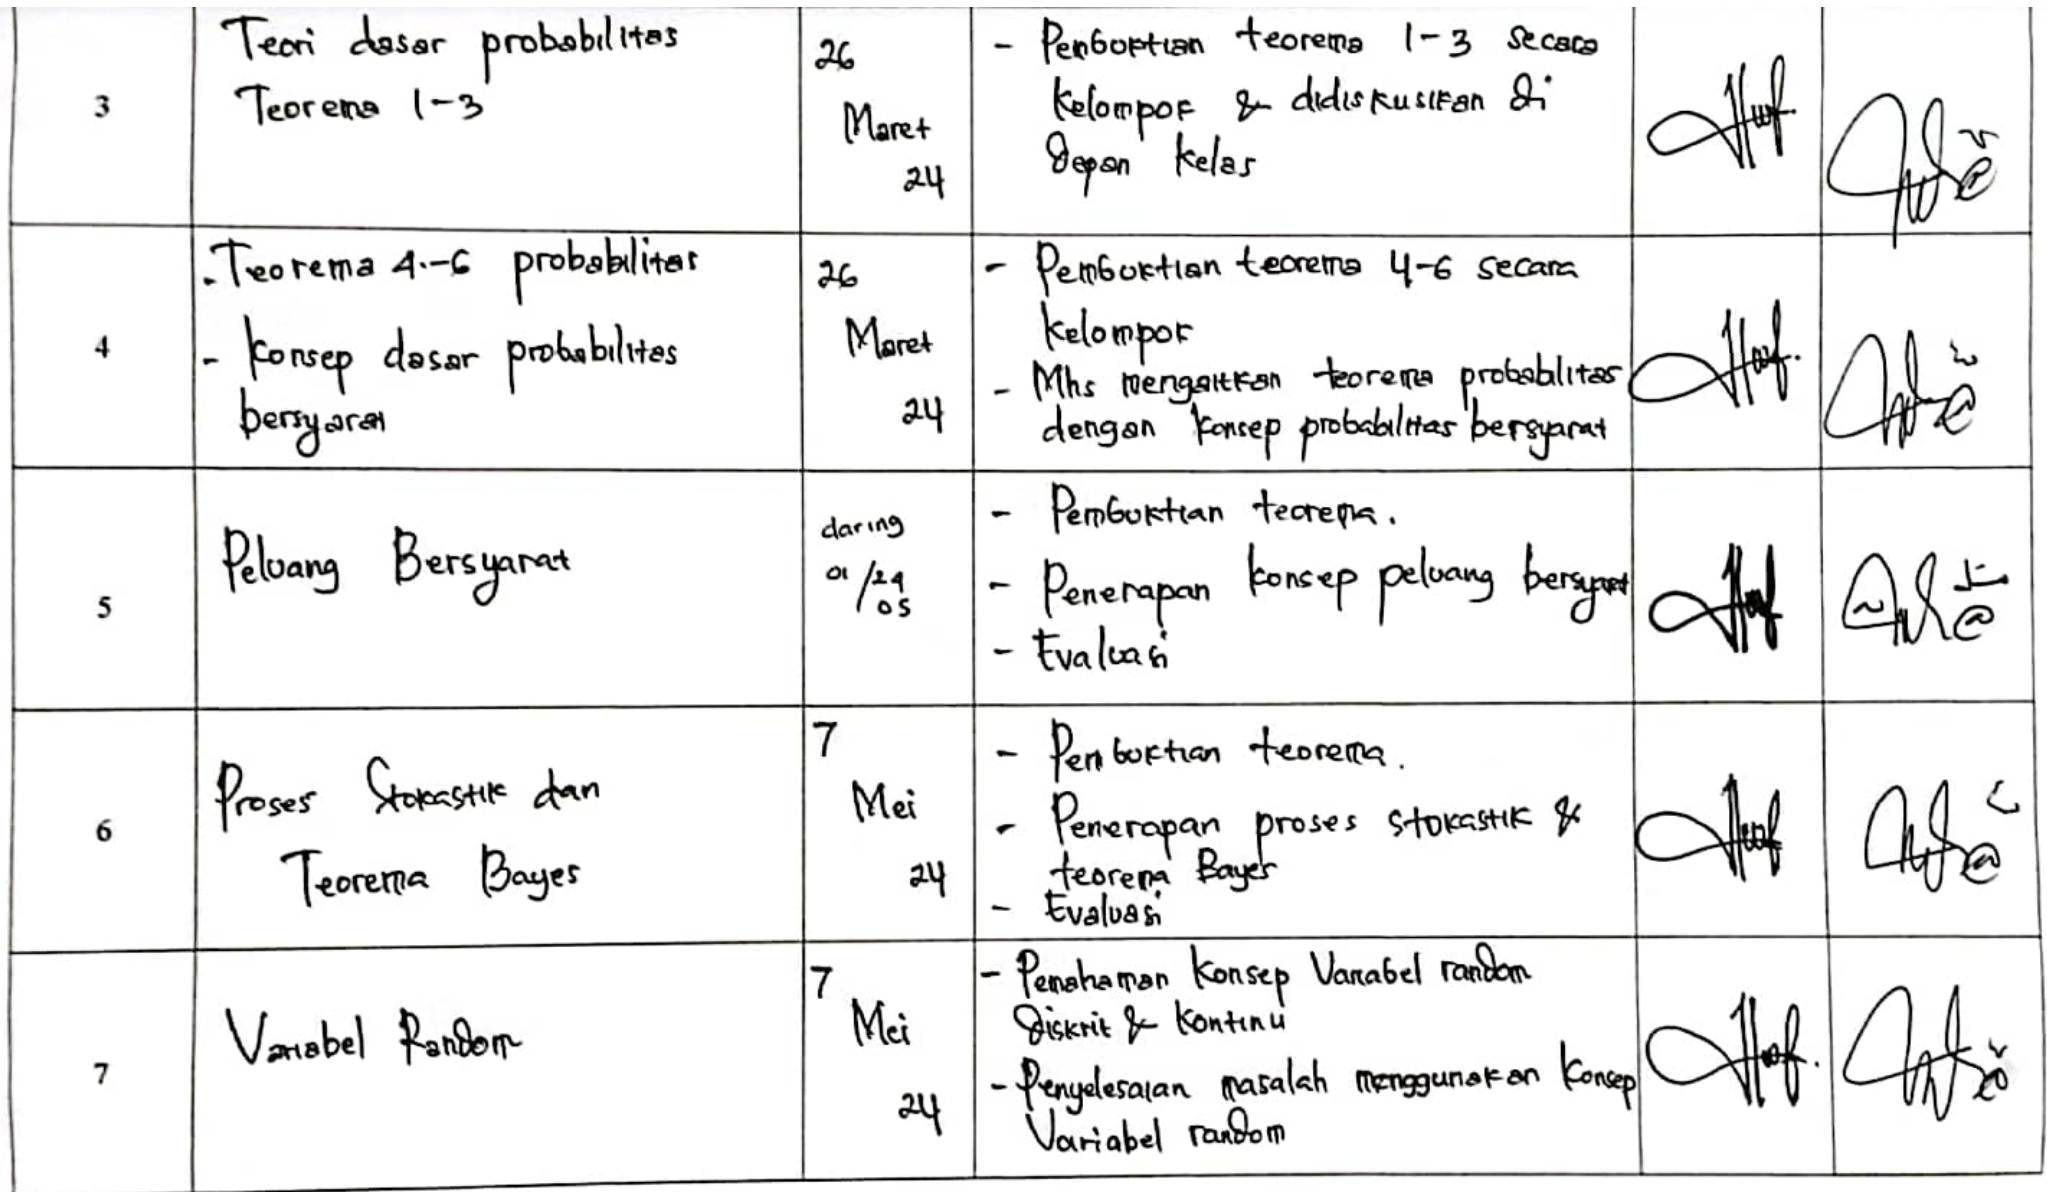 3
Teori dasar probabilitas
Teorema 1-3
26
Maret
24
- Pembuktian teorema 1-3 secara
kelompok & didiskusikan di
depan kelas
4
- Teorema 4-6 probabilitas
- Konsep dasar probabilitas
bersyarat
26
Maret
24
- Pembuktian teorema 4-6 secara
kelompok
- Mhs mengaitkan teorema probabilitas
dengan konsep probabilitas bersyarat
5
Peluang Bersyarat
daring
01/24
05
- Pembuktian teorema.
- Penerapan konsep peluang bersyarat
- Evaluasi
6
Proses Stokastik dan
Teorema Bayes
7
Mei
24
- Pembuktian teorema.
- Penerapan proses stokastik &
teorema Bayes
- Evaluasi
7
Variabel Random
7
Mei
24
- Pemahaman Konsep Variabel random
diskrit & kontinu
- Penyelesaian masalah menggunakan konsep
Variabel random